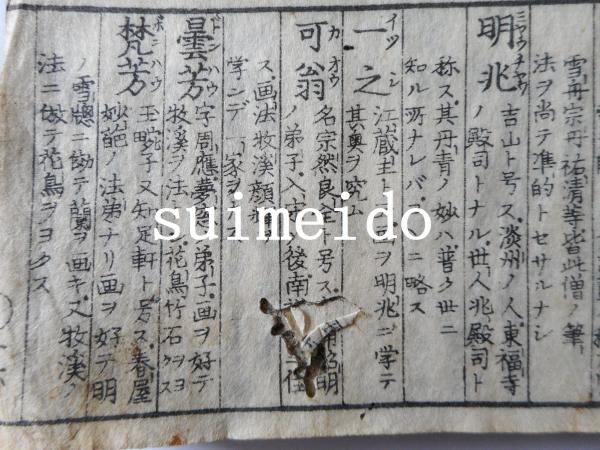 雪丹宗丹祐清等皆此僧ノ筆
法ヲ尚テ準的トセサルナシ
明兆 ミンチヤウ 吉山ト号ス淡州ノ人東福寺
ノ殿司トナル世人兆殿司ト
称ス其丹青ノ妙ハ普ク世ニ
知ル所ナレバコヽニ略ス
一之 イツシ 江蔵主ト云画ヲ明兆ニ学テ
其奥ヲ究ム
可翁 カオウ 名宗然良全ト号ス
ノ弟子入
後南
住
ス画法牧溪顔輝
学ンデ一家ヲ
曇芳 ドンハウ 字周應夢窓
弟子画ヲ好テ
牧溪ヲ法
花鳥竹石ヲヨクス
梵芳 ボンハウ 玉畹子又知足軒ト号ス春屋
妙葩ノ法弟ナリ画ヲ好テ明
ノ雪牕ニ倣テ蘭ヲ画キ又牧溪ノ
法ニ倣テ花鳥ヲヨクス
suimeido